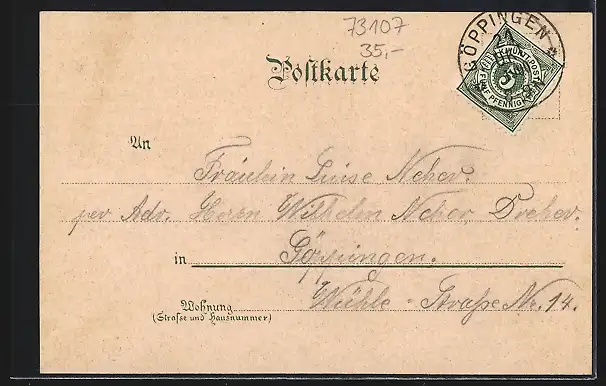 73107
35,-
GÖPPINGEN
K. WÜRTT. POST
5
FÜNF PFENNIG
Postkarte
An
Fräulein Luise Neher.
per Adr. Herrn Wilhelm Neher, Dreher.
in Göppingen.
Wohnung Mühl-Straße Nr. 14.
(Strasse und Hausnummer)